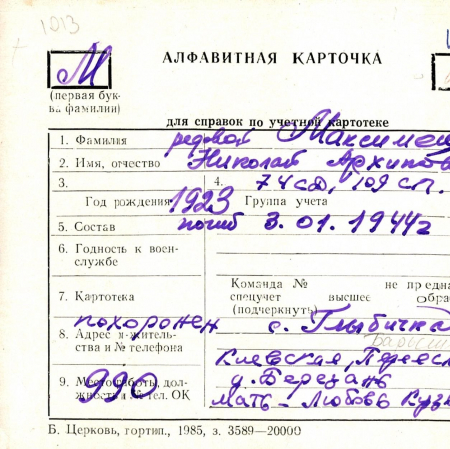 1213
М
АЛФАВИТНАЯ КАРТОЧКА
(первая бук-
ва фамилии)
для справок по учетной картотеке
1. Фамилия рядовой Максимен
2. Имя, отчество Николай Архипов
3. 4. 74 сд, 109 сп.
Год рождения 1923 Группа учета
5. Состав погиб 3.01.1944г
6. Годность к воен-
службе
Команда № не предна
7. Картотека спецучет высшее обра
(подчеркнуть)
похоронен с. Глыбичка
8. Адрес житель-
ства и № телефона
Киевская, Переясл
9. Место работы, дол-
жность и № тел. ОК
990
д. Березань
мать - Любовь Кузь
Б. Церковь, гортип., 1985, з. 3589—20000